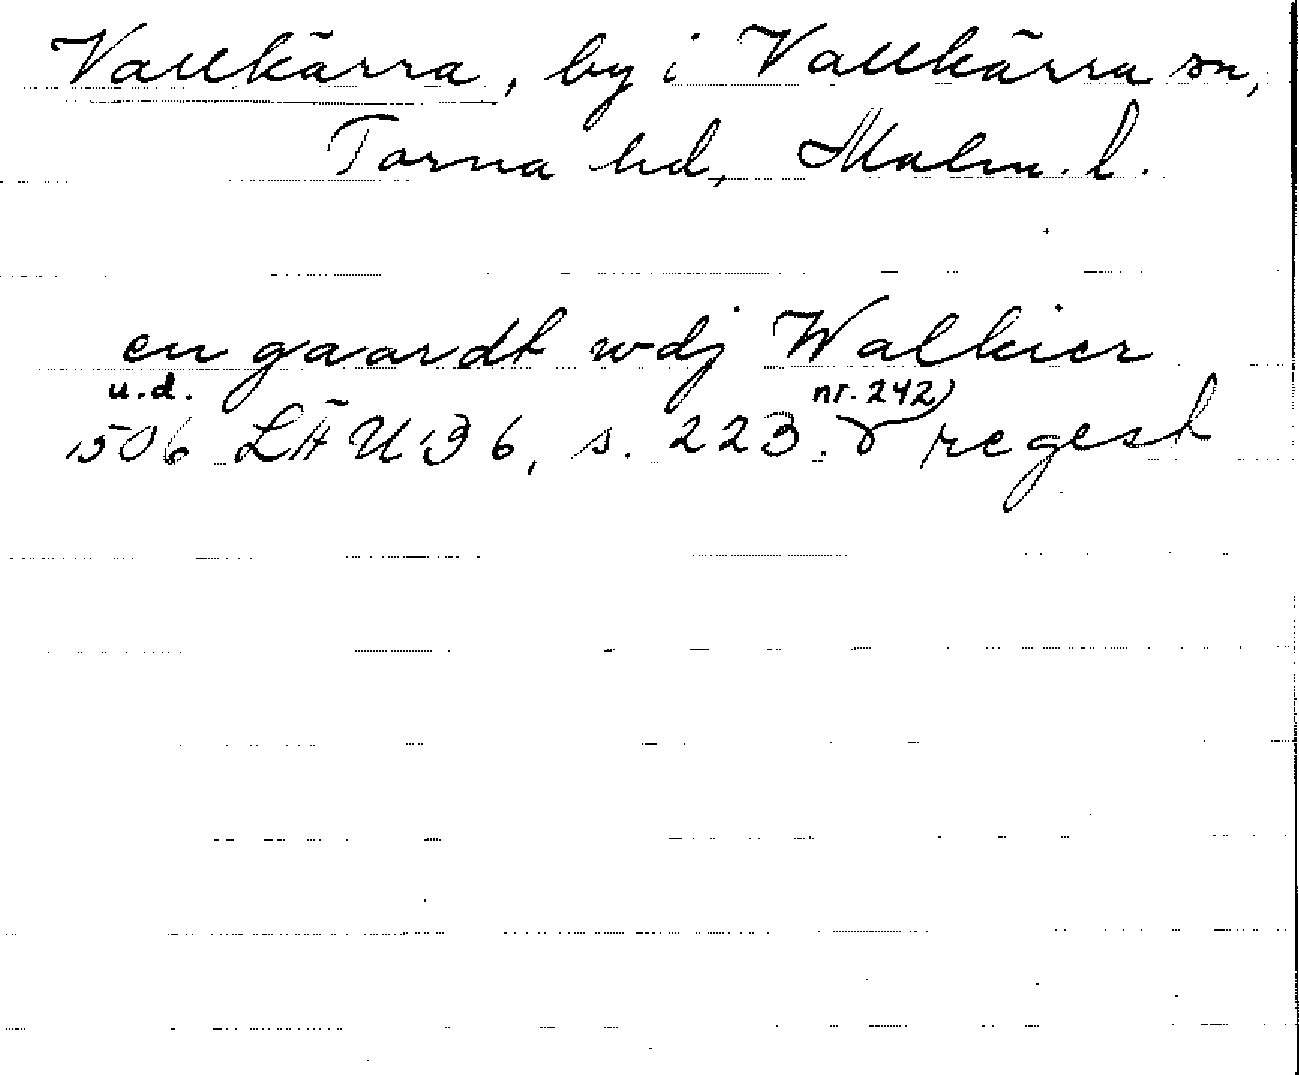 Vallkärra, by i Vallkärra sn,
Torna hd, Malm. l.
en gaardt wdj Walkier
u.d. nr. 242)
1506 LÄU 36, s. 223. regest